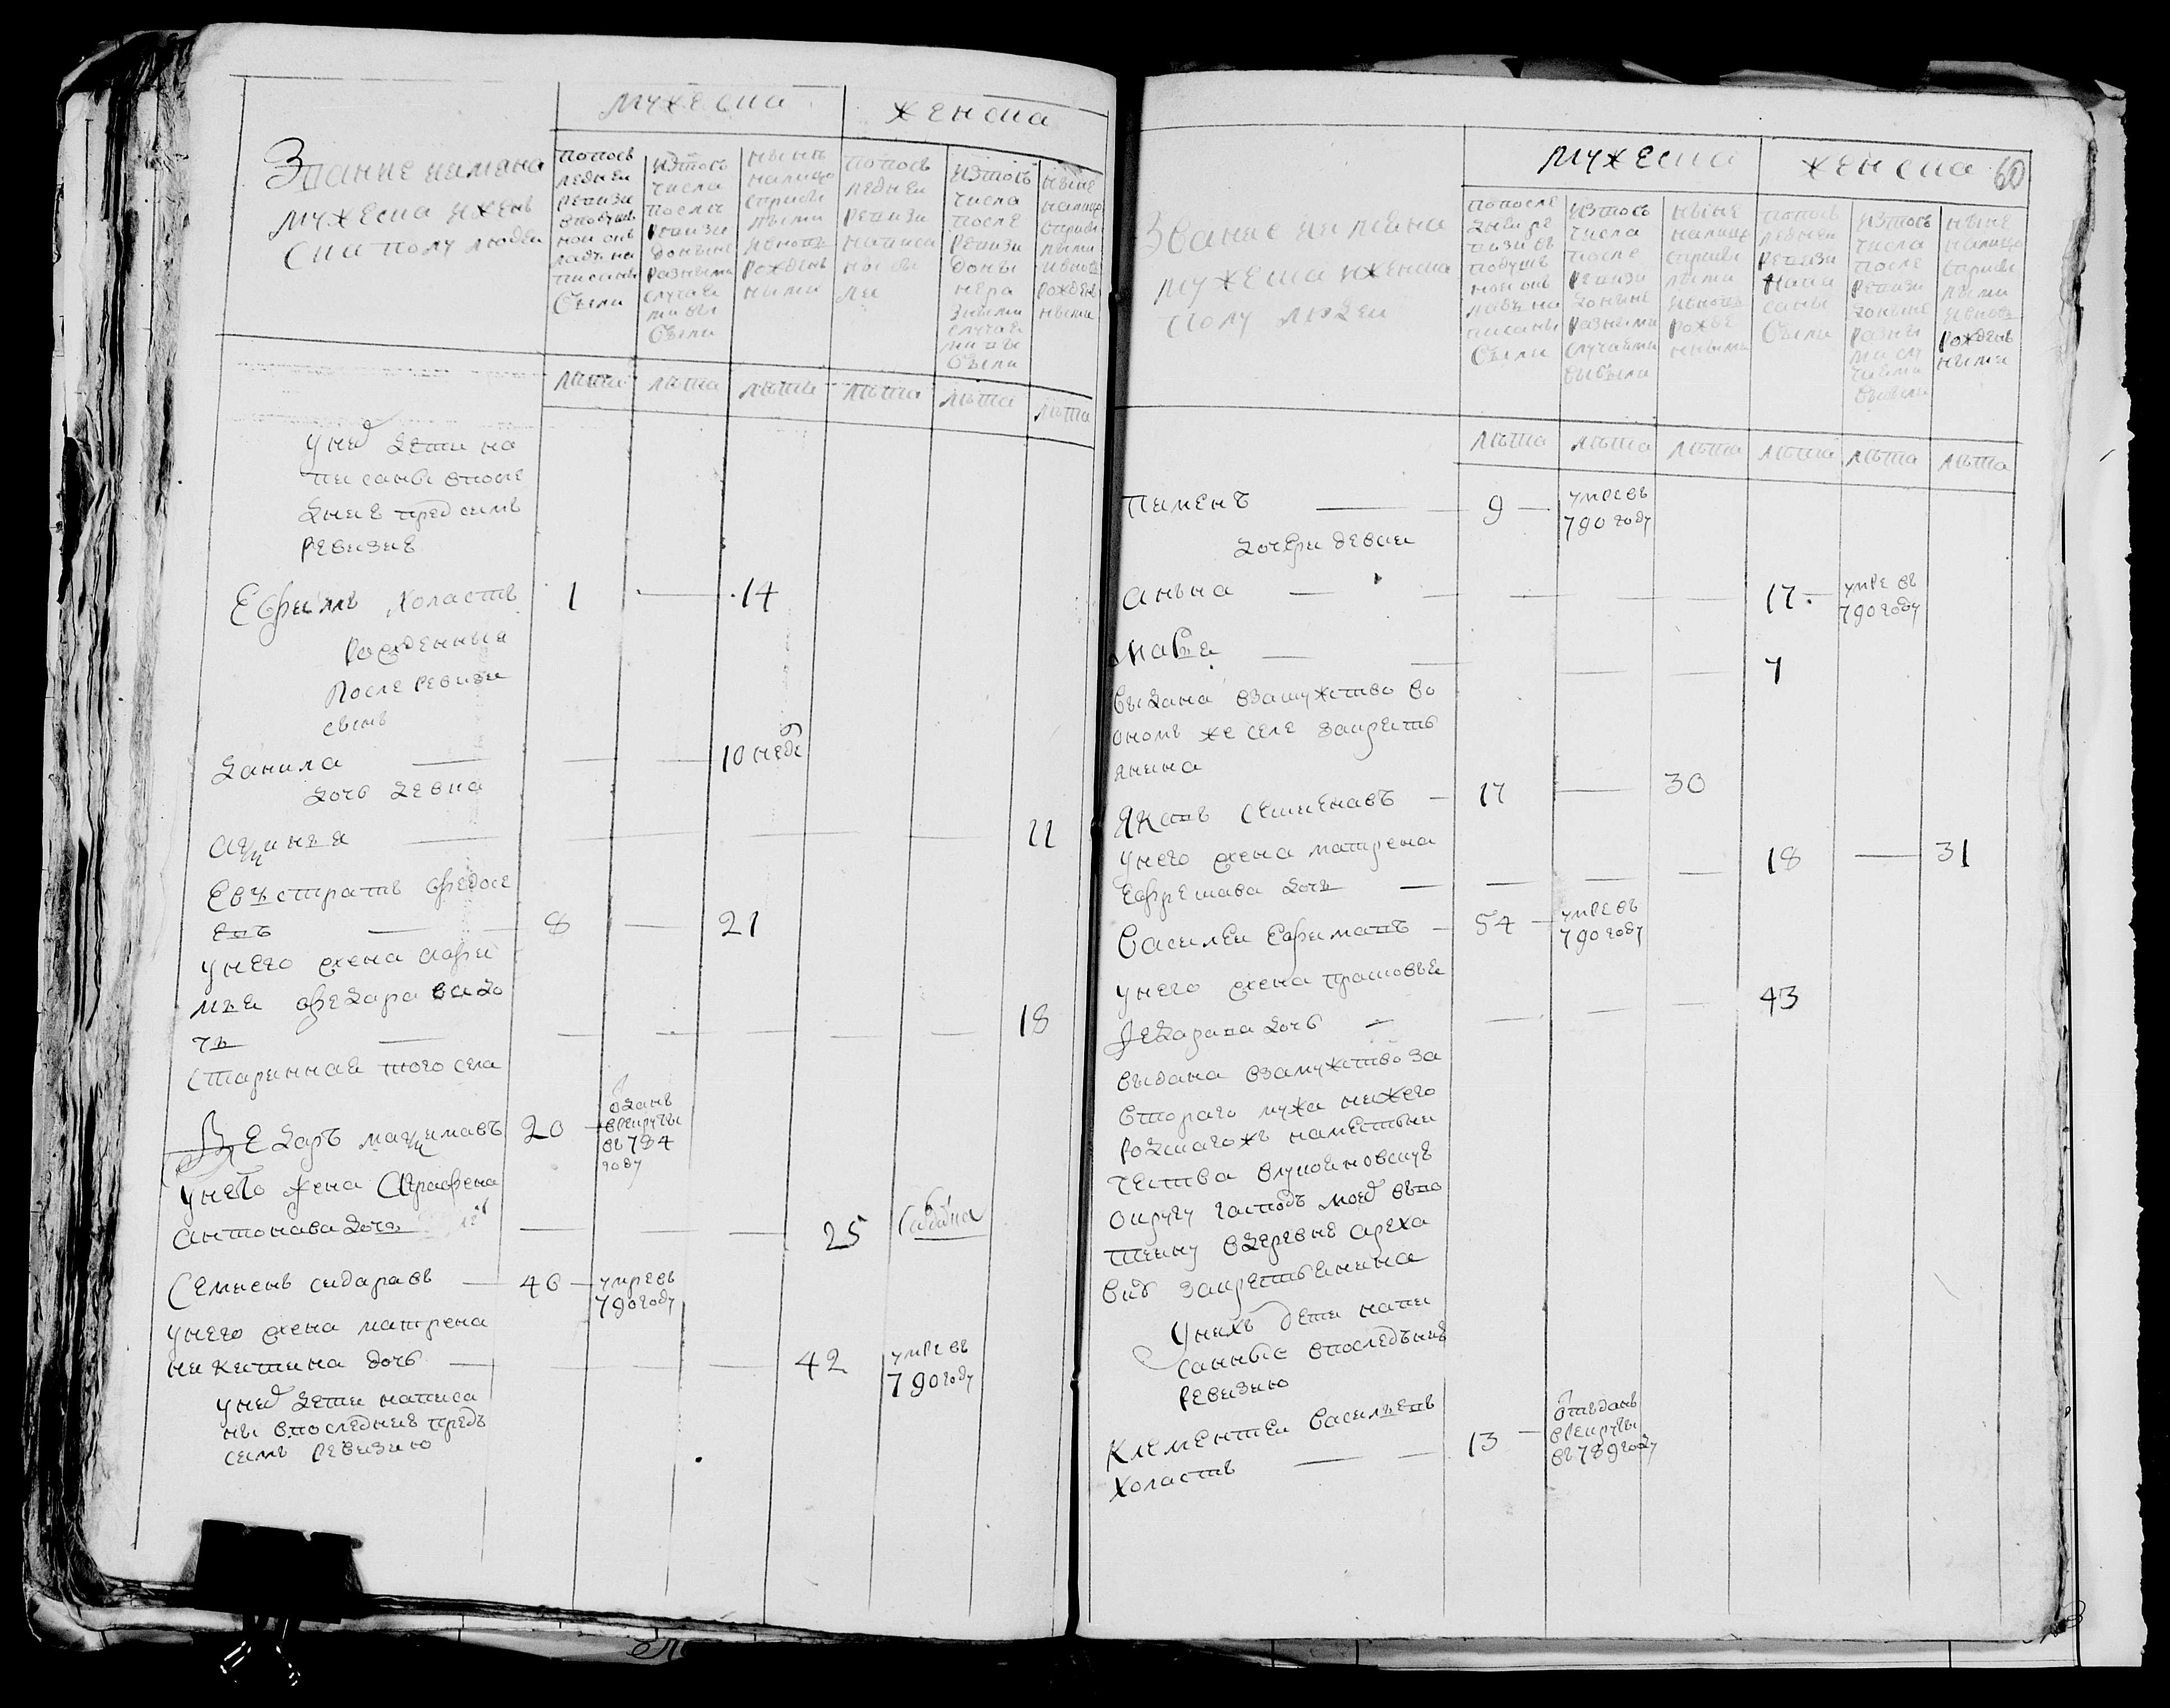 мужеска
женска
Звание и имяна
мужеска и жень
ска полу людеи
попось
ледней
ревизи
вподуш
ном ок
ладъ на
писаны
были
изтось
числа
после
ревизи
доныне
разными
случаи
были
нынъ
налицо
сприбы
лыми
ивновь
рожден
ными
попось
ледней
ревизи
написа
ны бы
ли
изтось
числа
после
ревизи
доны
нера
зными
случаи
были
ныне
налицо
сприбы
лыми
ивновь
рожден
ными
лъта
лъта
лъта
лъта
лъта
лъта
унеи дети на
писаны впосле
днию предсимъ
ревизию
Ефримъ холастъ 1 14
рожденныи
после ревизи
сынъ
данила 10 неде
дочь девка
аѯинья 11
Евъстратъ федосе
евъ 8 21
унего жена афи
мья федара ва до
чь 18
старинная того села
Федаръ маѯимавъ 20
одань
врекруты
въ 784
году
унего жена Аграфена
антонава дочь 25
Семенъ сидаравъ 46 умре въ
790 году
унего жена матрена
никитина дочь 42 умре въ
790 году
унеи дети написа
ны впоследнию предъ
симъ ревизию
мужеска
женска
60
Звание и имяна
мужеска и женска
полу людеи
попосле
дней ре
визи въ
подуш
ном ок
ладъ на
писаны
были
изтось
числа
после
ревизи
доныне
разными
случаями
выбыли
ныне
налицо
сприбы
лыми
ивновь
рожде
нными
попось
ледней
ревизи
напи
саны
были
изтось
числа
после
ревизи
доныне
разны
ми слу
чаями
выбыли
ныне
налицо
сприбы
лыми
ивновь
рождень
ными
лъта
лъта
лъта
лъта
лъта
лъта
Пименъ 9 умре въ
790 году
дочери девки
анъна 17 умре въ
790 году
марья 7
выдана взамужство во
ономъ же селе закресть
янина
Яковъ Семенавъ 17 30
унего жена матрена
Ефремава дочь 18 31
Василеи Ефимавъ 54 умре въ
790 году
унего жена прасковья
Федарава дочь 43
выдана взамужство за
втораго мужа нижего
родскагожъ наместни
чества влукояновскую
округу господъ моей въпо
тчину вдеревне ареха
вку закрестьянина
Унихъ дети напи
санные впоследънию
ревизию
Клементеи васильевъ
холастъ 13
отъданъ
врекруты
въ 789 году